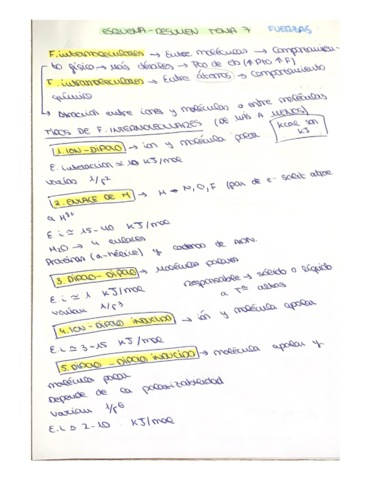 ESQUEMA-RESUMEN TEMA 7 FUERZAS
F. intermoleculares → Entre moléculas → Comportamien-
to físico → Más débiles → Pto de eb (↑Pto ↑F)
F. intramoleculares → Entre átomos → comportamiento
químico
↳ Atracción entre iones y moléculas o entre moléculas
TIPOS DE F. INTERMOLECULARES (DE MÁS A MENOS)
1. ION-DIPOLO → ion y molécula polar
E. interacción ≃ 10 KJ/mol
varían 1/r²
2. ENLACE DE H → H → N, O, F (par de e- solit atrae
a H
E.i ≃ 15-40 KJ/mol
H₂O → 4 enlaces
Proteínas (α-hélice) y cadenas de ADN.
3. DIPOLO-DIPOLO → Molécula polares
E.i ≃ 1 KJ/mol responsable → sólido o líquido
varían 1/r³ a Tas altas
4. ION-DIPOLO INDUCIDO → ión y molécula apolar
E.i ≃ 3-15 KJ/mol
5. DIPOLO-DIPOLO INDUCIDO → molécula apolar y
molécula polar
Depende de la polarizabilidad
Varían 1/r⁶
E.i ≃ 2-10 KJ/mol